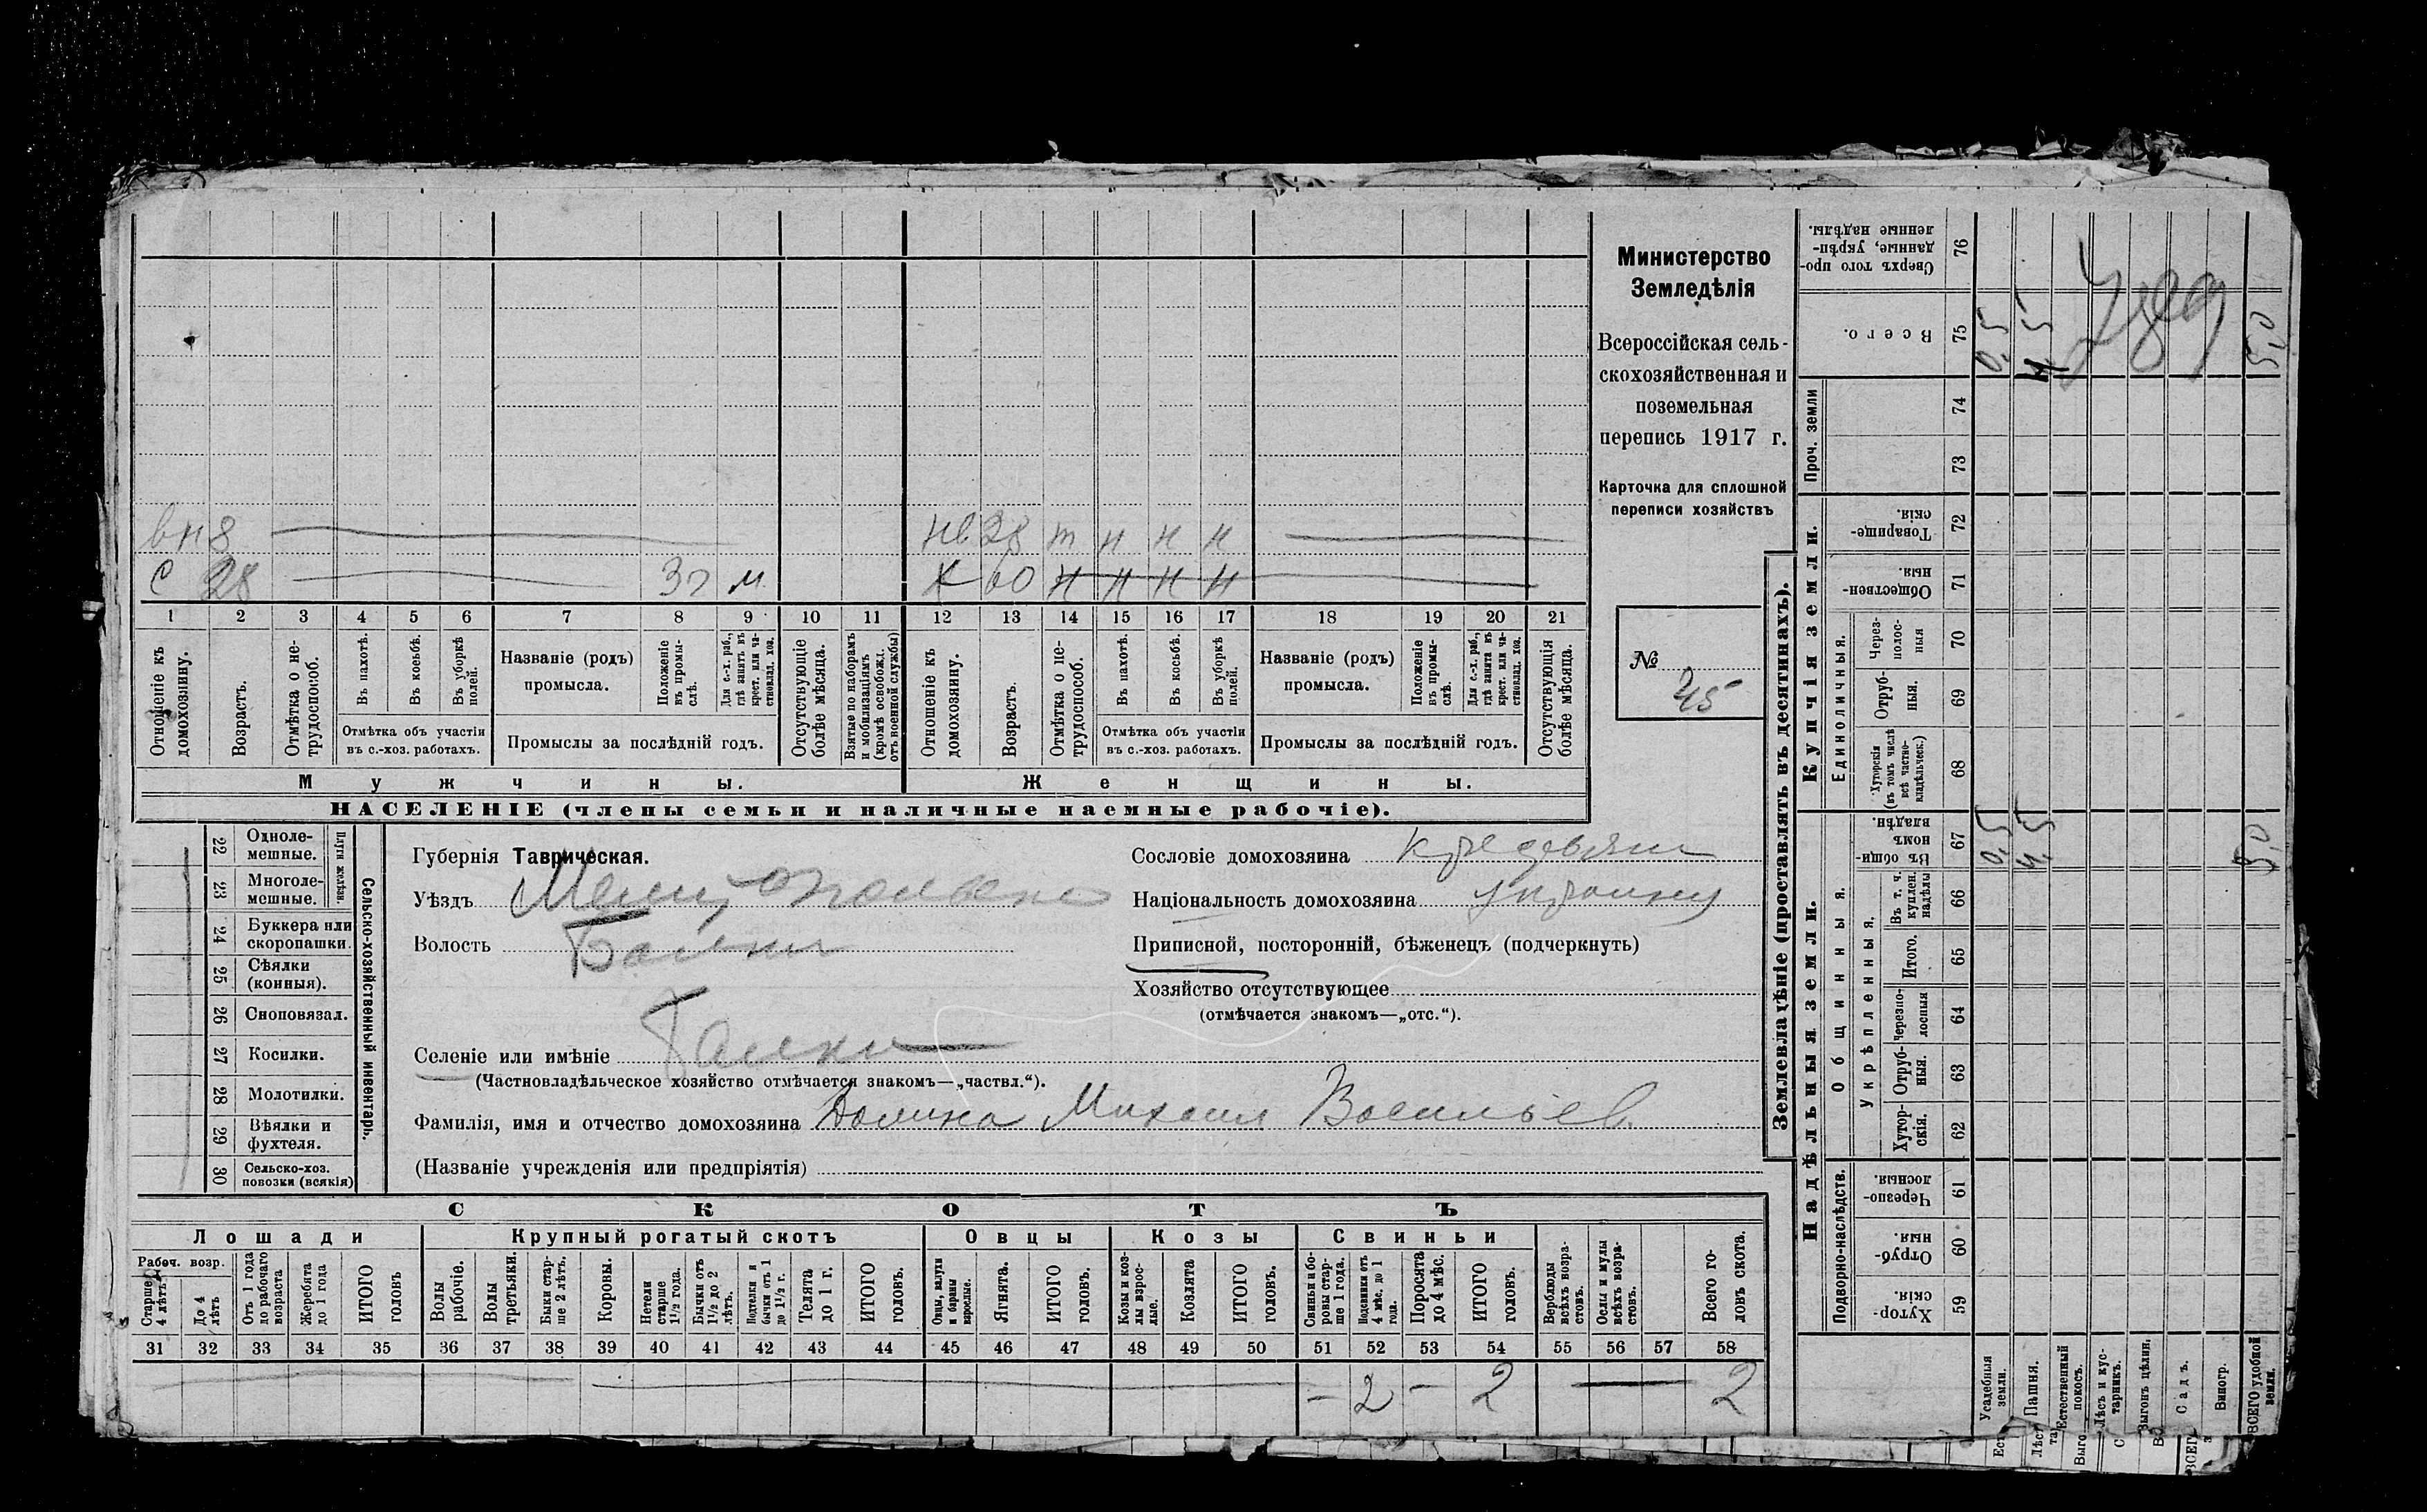 Министерство
Земледѣлія
Всероссійская сель-
скохозяйственная и
поземельная
перепись 1917 г.
Карточка для сплошной
переписи хозяйствъ
№ 45
вн 8
нв 28 т н н н
с 28
м
60 н н н н
1 2 3 4 5 6 7 8 9 10 11 12 13 14 15 16 17 18 19 20 21
Отношеніе къ домохозяину.
Возрастъ.
Отмѣтка о не-трудоспособ.
Въ пахотѣ.
Въ косьбѣ.
Въ уборкѣ полей.
Отмѣтка объ участіи
въ с.-хоз. работахъ.
Названіе (родъ)
промысла.
Положеніе въ промы-слѣ.
Для с.-х. раб., гдѣ занятъ въ крест. или ча-стновлад. хоз.
Промыслы за послѣдній годъ.
Отсутствующіе болѣе мѣсяца.
Взятые по наборамъ и мобилизаціямъ (кромѣ освобожд. отъ военной службы)
Отношеніе къ домохозяину.
Возрастъ.
Отмѣтка о не-трудоспособ.
Въ пахотѣ.
Въ косьбѣ.
Въ уборкѣ полей.
Отмѣтка объ участіи
въ с.-хоз. работахъ.
Названіе (родъ)
промысла.
Положеніе въ промы-слѣ.
Для с.-х. раб., гдѣ занята въ крест. или ча-стновлад. хоз.
Промыслы за послѣдній годъ.
Отсутствующія болѣе мѣсяца.
Мужчины.
Женщины.
НАСЕЛЕНІЕ (члены семьи и наличные наемные рабочіе).
Сельско-хозяйственный инвентарь.
Плуги желѣзн.
22 Одноле-мешные.
23 Многоле-мешные.
24 Буккера или скоропашки.
25 Сѣялки (конныя).
26 Сноповязал.
27 Косилки.
28 Молотилки.
29 Вѣялки и фухтеля.
30 Сельско-хоз. повозки (всякія)
Губернія Таврическая.
Уѣздъ
Волость Балки
Селеніе или имѣніе Балки
(Частновладѣльческое хозяйство отмѣчается знакомъ—„частвл.“).
Фамилія, имя и отчество домохозяина Долина Михаил Васильев.
(Названіе учрежденія или предпріятія)
Сословіе домохозяина
Національность домохозяина
Приписной, посторонній, бѣженецъ (подчеркнуть)
Хозяйство отсутствующее
(отмѣчается знакомъ—„отс.“).
СКОТЪ
Лошади
Крупный рогатый скотъ
Овцы
Козы
Свиньи
Рабоч. возр.
Старше 4 лѣтъ
До 4 лѣтъ
Отъ 1 года до рабочаго возраста
Жеребята до 1 года
ИТОГО головъ
Волы рабочіе.
Волы третьяки.
Быки стар-ше 2 лѣтъ.
Коровы.
Нетели старше 1½ года.
Бычки отъ 1½ до 2 лѣтъ.
Подтелки и бычки отъ 1 до 1½ г.
Телята до 1 г.
ИТОГО головъ.
Овцы, валухи и бараны взрослые.
Ягнята.
ИТОГО головъ.
Козы и коз-лы взрос-лые.
Козлята
ИТОГО головъ.
Свиньи и бо-ровы стар-ше 1 года.
Подсвинки отъ 4 мѣс. до 1 года.
Поросята до 4 мѣс.
ИТОГО головъ.
Верблюды всѣхъ возра-стовъ.
Ослы и мулы всѣхъ возра-стовъ.
Всего го-ловъ скота.
31 32 33 34 35 36 37 38 39 40 41 42 43 44 45 46 47 48 49 50 51 52 53 54 55 56 57 58
— 2 — 2 — 2
Землевладѣніе (проставлять въ десятинахъ).
Надѣльныя земли.
Купчія земли.
Проч. земли
Подворно-наслѣдств.
Общинныя.
Укрѣпленныя.
Единоличныя.
Сверхъ того про-данные, укрѣп-ленные надѣлы. 76
Всего. 75 0,5 4,5 5,0
74
73
Товарище-скія. 72
Обществен-ныя. 71
Через-полос-ныя 70
Отруб-ныя. 69
Хуторскія (въ томъ числѣ всѣ частно-владѣльческ.) 68
Въ общин-номъ владѣн. 67 0,5 4,5 5,0
Въ т. ч. куплен. надѣлы 66
Итого. 65
Черезпо-лосныя 64
Отруб-ныя. 63
Хутор-скія. 62
Черезпо-лосныя. 61
Отруб-ныя. 60
Хутор-скія. 59
Усадебныя земли.
Пашня.
Естественный покосъ.
Лѣсъ и кус-тарникъ.
Выгонъ цѣлин.
Садъ.
Виногр.
ВСЕГО удобной земли.